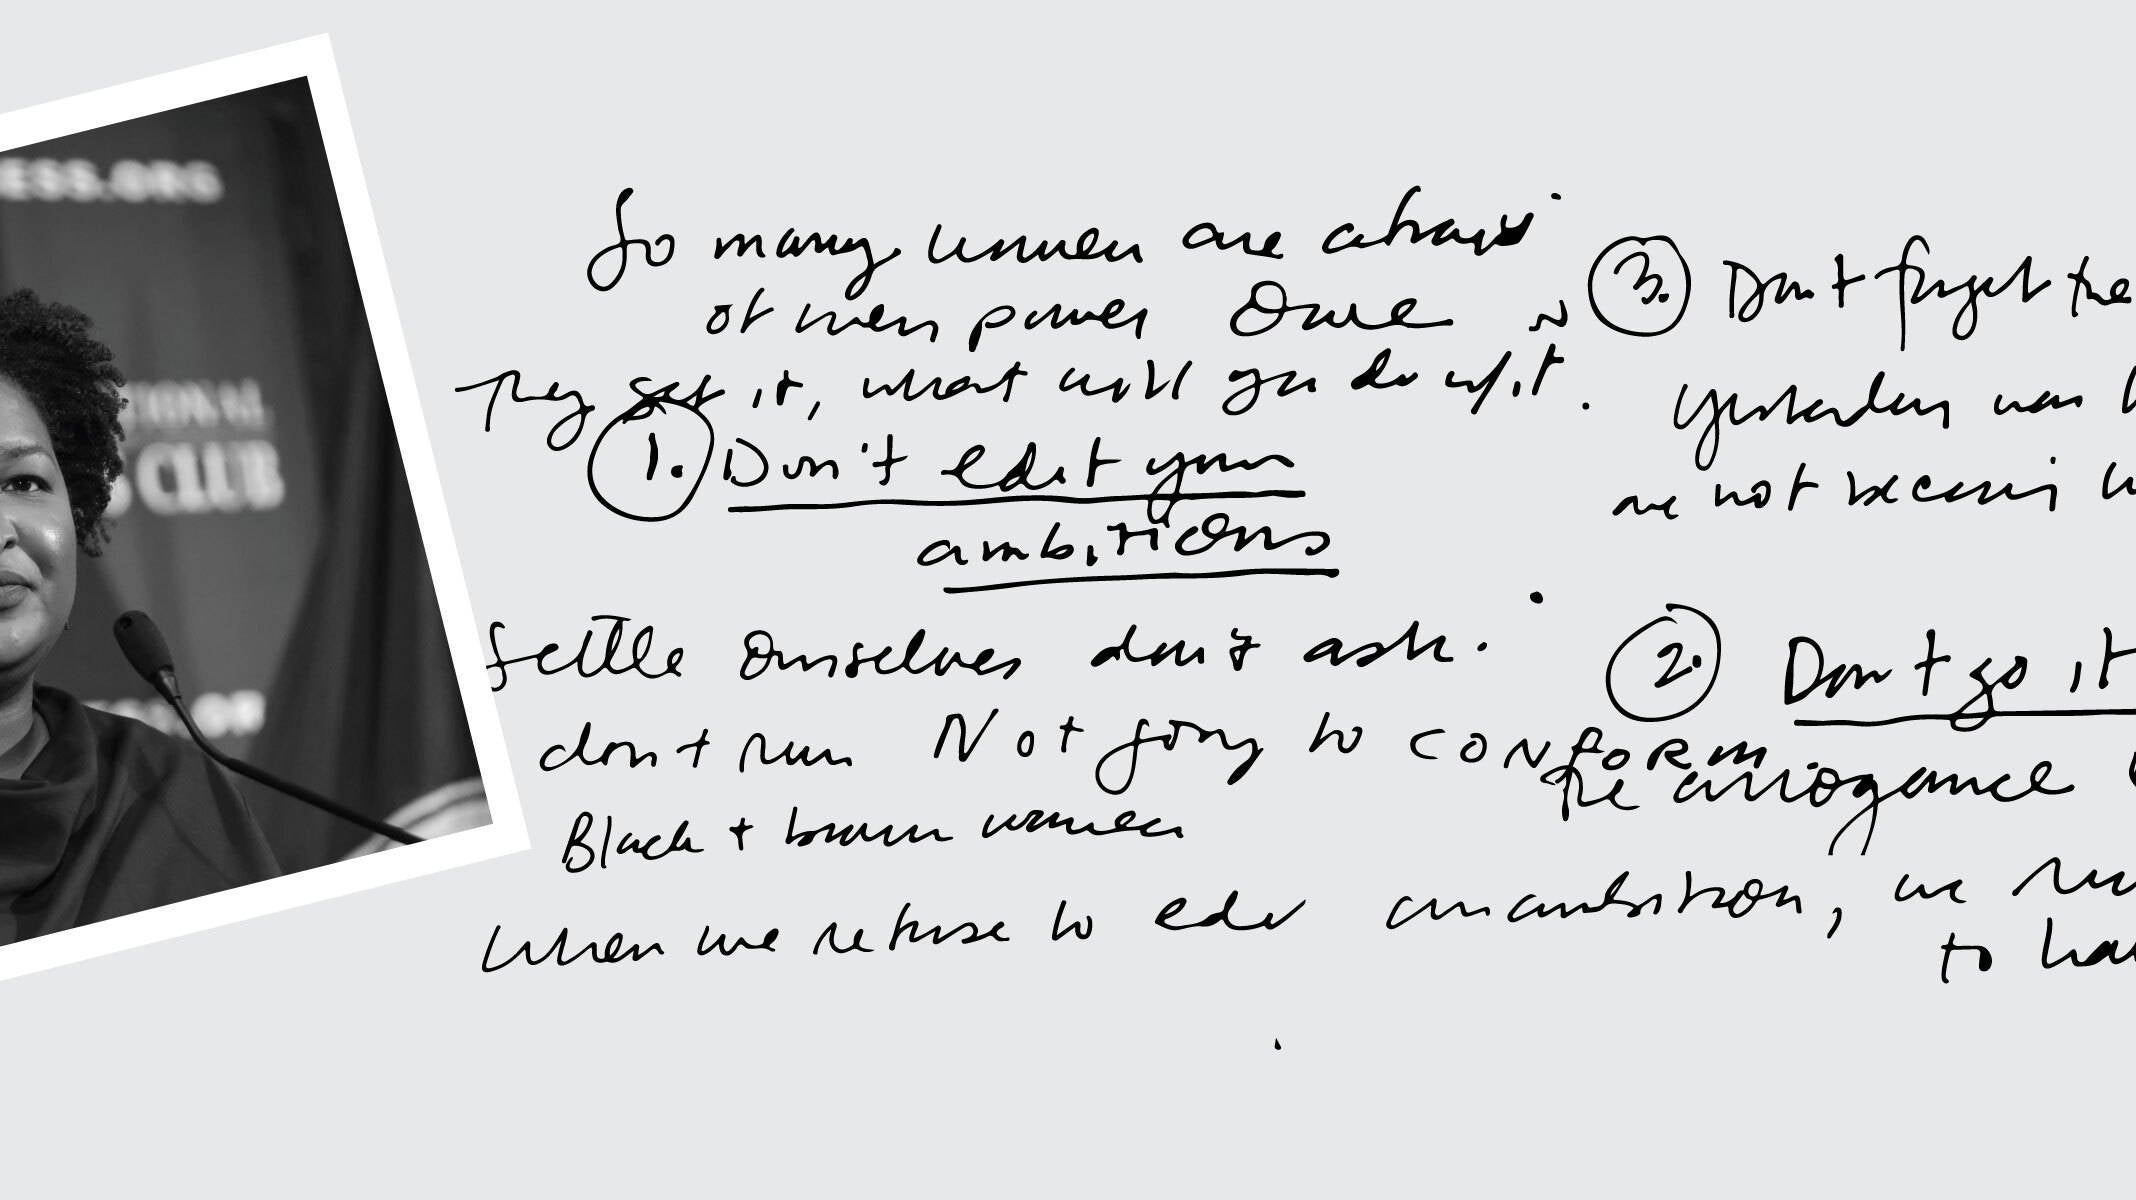 ESS.ORG
TIONAL
S CLUB
So many women are afraid
of their power Once
they get it, what will you do w/it.
1. Don't edit your
ambitions
settle ourselves don't ask.
don't run Not going to CONFORM
Black + brown women
When we refuse to edit our ambition, we
to
3. Don't forget the
yesterday was
are not because
2. Don't go it
the arrogance